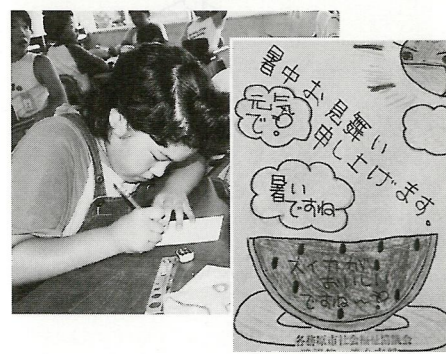 暑中お見舞い
申し上げます。
元気
で。
暑い
ですね
スイカが
おいしい
ですね〜?
各務原市社会福祉協議会